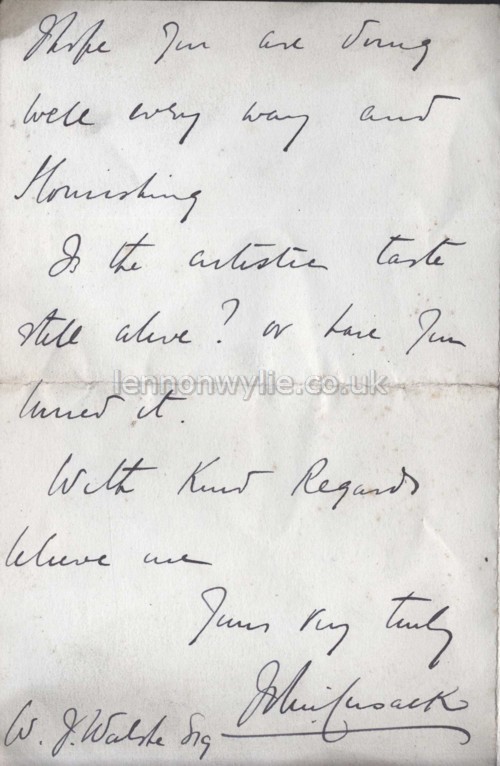 I hope you are doing
well every way and
flourishing
Is the artistic taste
still alive? or have you
lennonwylie.co.uk
buried it.
With Kind Regards
believe me
Yours very truly
John Cusack
W. J. Walshe Esq